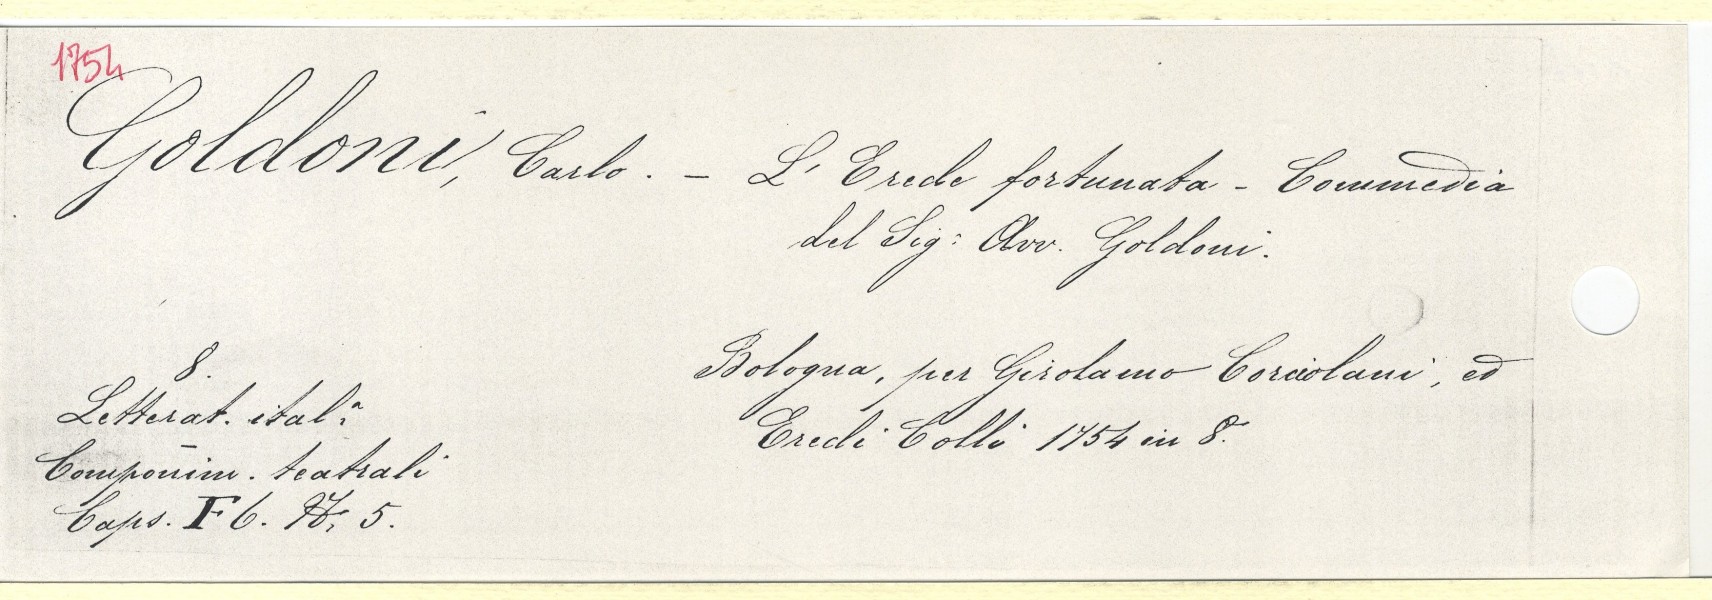 1754
Goldoni, Carlo. - L'Erede fortunata - Commedia
del Sig: Avv. Goldoni.
Bologna, per Girolamo Corciolani, ed
Eredi Colli 1754 in 8.
8.
Letterat. ital.a
Componim. teatrali
Caps. F 6. N. 5.